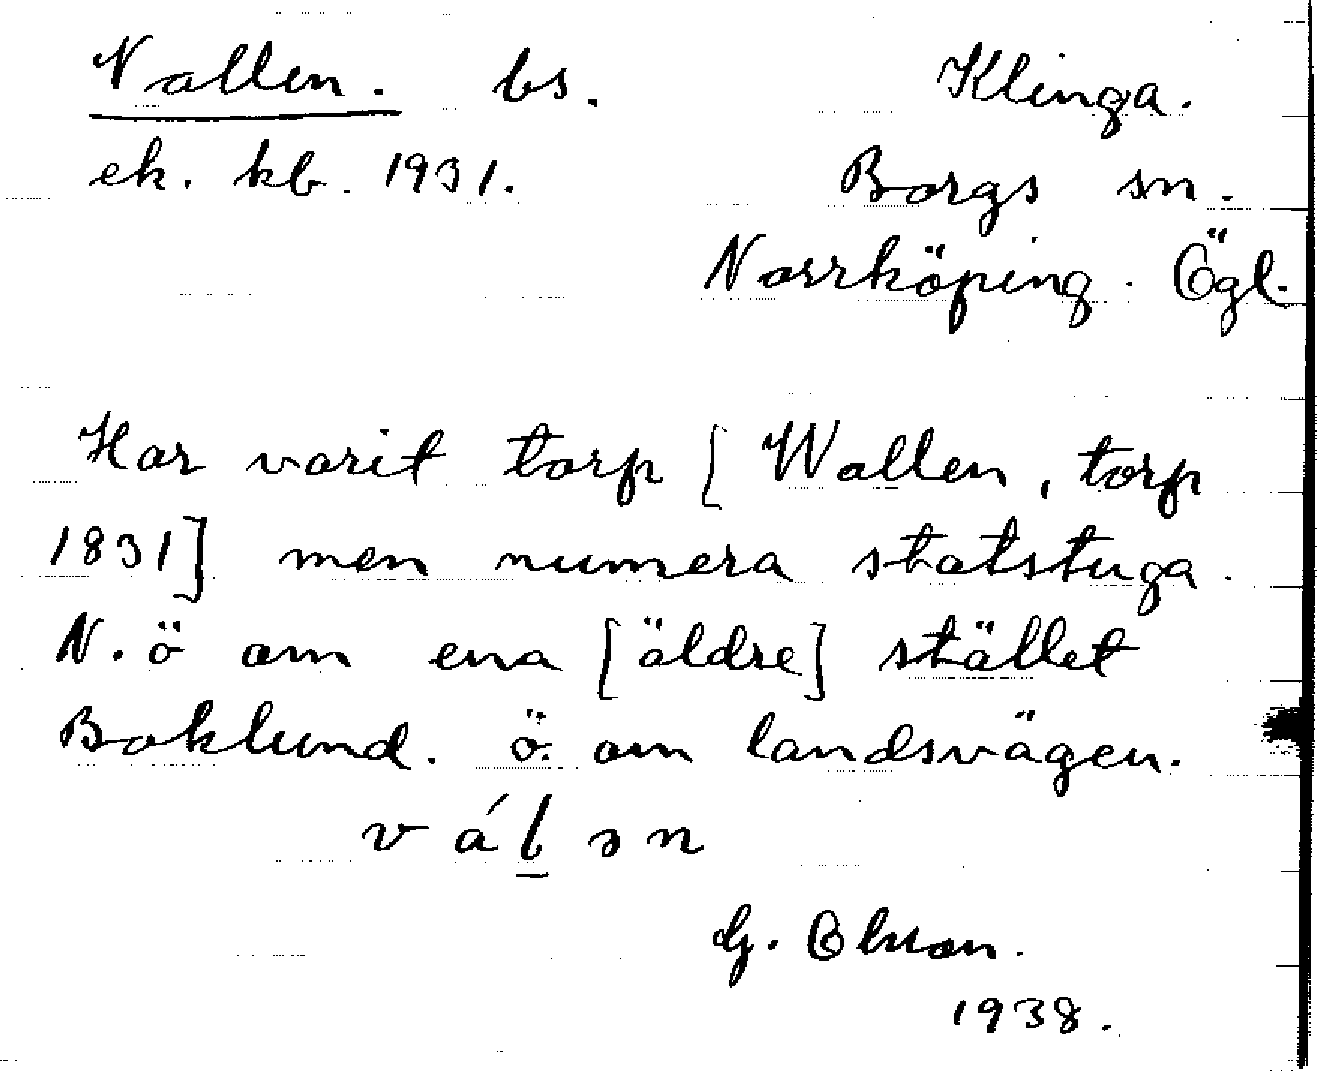 Vallen. bs. Klinga.
ek. kb. 1931. Borgs sn.
Norrköping. Ögl.
Har varit torp [Wallen, torp
1831] men numera statstuga.
N.ö om ena [äldre] stället
Boklund. ö. om landsvägen.
v á l̲ ə n
G. Olsson.
1938.